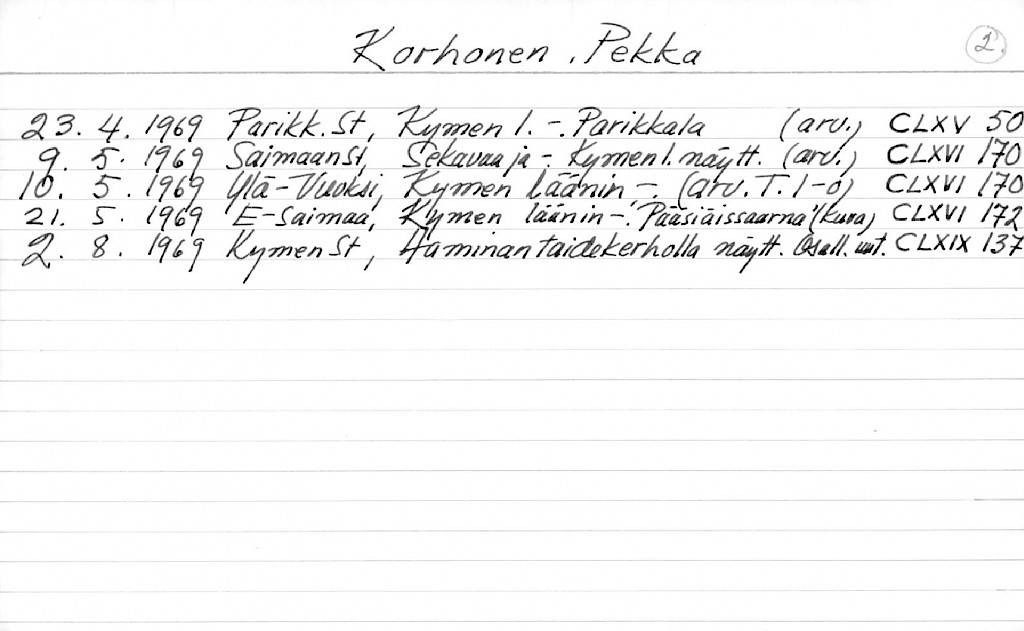 Korhonen, Pekka 2.
23. 4. 1969 Parikk. St, Kymen l. -. Parikkala (arv.) CLXV 50
9. 5. 1969 SaimaanSt, Sekavaa ja -. Kymen l. näytt. (arv.) CLXVI 170
10. 5. 1969 Ylä-Vuoksi, Kymen läänin -. (arv. T. I-o) CLXVI 170
21. 5. 1969 E-Saimaa, Kymen läänin -. "Pääsiäissaarna" (kuva) CLXVI 172
2. 8. 1969 KymenSt, Haminan taidekerholla näytt. Osall. uut. CLXIX 137